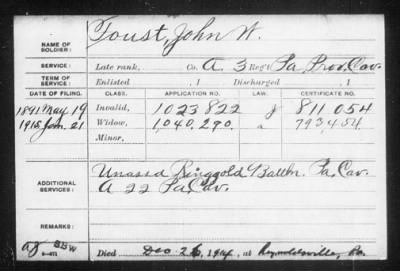 Foust, John W.
NAME OF SOLDIER:
SERVICE: Late rank, Co. A. 3 Reg't Pa. Prov. Cav.
TERM OF SERVICE: Enlisted , 1 Discharged , 1
DATE OF FILING. CLASS. APPLICATION NO. LAW. CERTIFICATE NO.
1891 May 19 Invalid, 1023822 J 811054
1915 Jan. 21 Widow, 1,040,290. 793454
Minor,
ADDITIONAL SERVICES: Unassd Ringgold Battn. Pa. Cav.
A 22 Pa. Cav.
REMARKS:
BBW
Died Dec 26, 1914, at Reynoldsville, Pa.